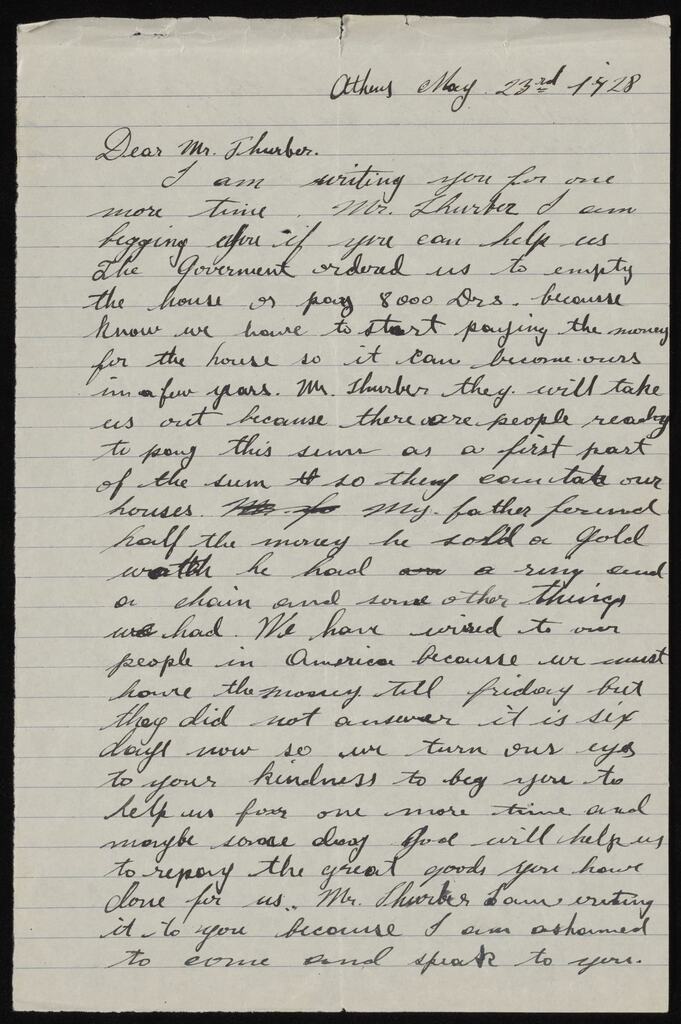 Athens May. 23rd 1928
Dear Mr. Thurber.
I am writing you for one
more time. Mr. Thurber I am
begging you if you can help us
The Goverment ordered us to empty
the house or pay 8000 Drs. becausse
know we have to start paying the money
for the house so it can become ours
in a few years. Mr. Thurber they will take
us out because there are people ready
to pay this sum as a first part
of the sum so they can take our
houses. My father found
half the money he sold a gold
watch he had a ring and
a chain and some other things
we had. We have wired to our
people in America becausse we must
have the money till friday but
they did not answer it is six
days now so we turn our eyes
to your kindness to beg you to
help us for one more time and
maybe some day god will help us
to repay the great goods you have
done for us.. Mr. Thurber I am writing
it to you because I am ashamed
to come and speak to you.